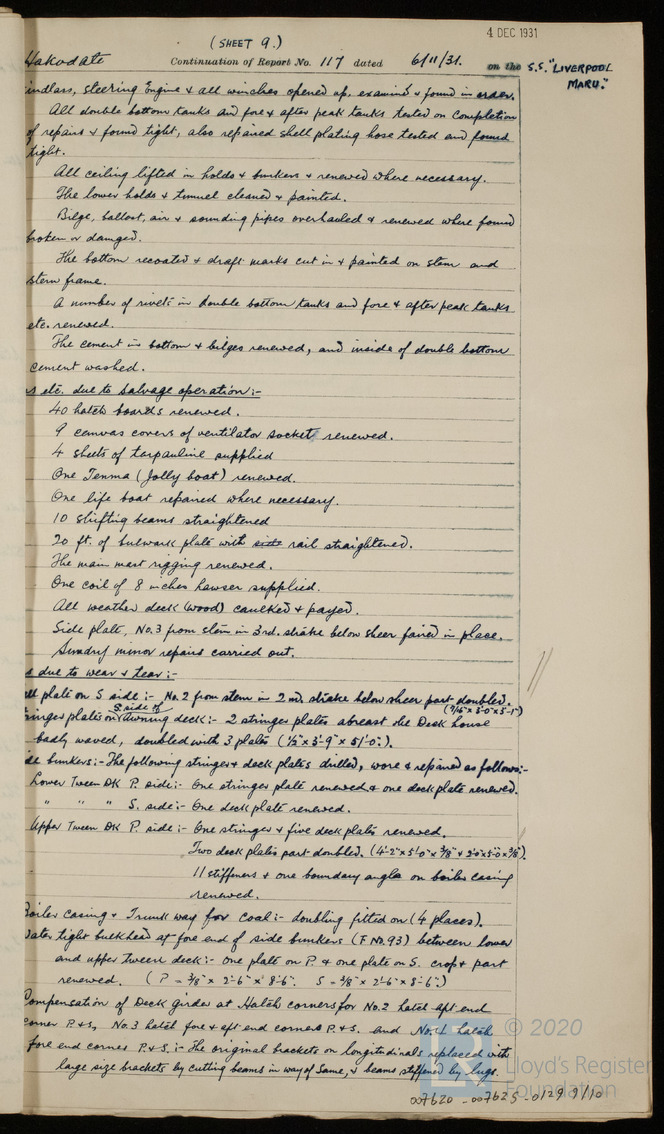 4 DEC 1931
(SHEET 9.)
Hakodate Continuation of Report No. 117 dated 6/11/31. on the S.S. "LIVERPOOL MARU."
indlass, steering Engine & all winches opened up, examined & found in order.
All double bottom tanks and fore & after peak tanks tested on completion
of repairs & found tight, also repaired shell plating hose tested and found
tight.
All ceiling lifted in holds & bunkers & renewed where necessary.
The lower holds & tunnel cleaned & painted.
Bilge, ballast, air & sounding pipes overhauled & renewed where found
broken or damaged.
The bottom recoated & draft marks cut in & painted on stem and
stern frame.
A number of rivets in double bottom tanks and fore & after peak tanks
etc. renewed.
The cement in bottom & bilges renewed, and inside of double bottom
cement washed.
s etc. due to salvage operation:-
40 hatch boards renewed.
9 canvas covers of ventilator socket renewed.
4 sheets of tarpauline supplied
One Tenma (Jolly boat) renewed.
One life boat repaired where necessary.
10 shifting beams straightened
20 ft. of bulwark plate with side rail straightened.
The main mast rigging renewed.
One coil of 8 inches hawser supplied.
All weather deck (wood) caulked & payed.
Side plate, No.3 from stem in 3rd. strake below sheer faired in place.
Sundry minor repairs carried out.
s due to wear & tear:-
ell plate on S side:- No. 2 from stem in 2nd. strake below sheer part doubled.
(7/16" x 3'-0" x 5'-1")
ringer plates on S. side of Awning deck:- 2 stringer plates abreast the Deck house
badly waved, doubled with 3 plates (1/2" x 3'-9" x 51'-0").
de bunkers:- The following stringer & deck plates drilled, wore & repaired as follows:-
Lower Tween DK P. side:- One stringer plate renewed & one deck plate renewed.
" " " S. side:- One deck plate renewed.
Upper Tween DK P. side:- One stringer & five deck plates renewed.
Two deck plates part doubled. (4'-2" x 5'-0" x 3/8" & 2'-0" x 5'-0 x 3/8").
11 stiffeners & one boundary angle on boiler casing
renewed.
Boiler casing & Trunk way for coal:- doubling fitted on (4 places).
Water tight bulkhead at fore end of side bunkers (F No. 93) between lower
and upper tween deck:- One plate on P. & one plate on S. crop & part
renewed. (P = 3/8" x 2'-6" x 8'-6". S = 3/8" x 2'-6" x 8'-6".)
Compensation of Deck girder at Hatch corners for No. 2 hatch aft end
corner P. & S, No. 3 hatch fore & aft end corners P. & S. and No. 4 hatch
fore end corner P. & S.:- The original brackets on longitudinals replaced with
large size brackets by cutting beams in way of same, & beams stiffened by lugs.
© 2020
Lloyd's Register
Foundation
007620 - 007625 - 0129 9/10